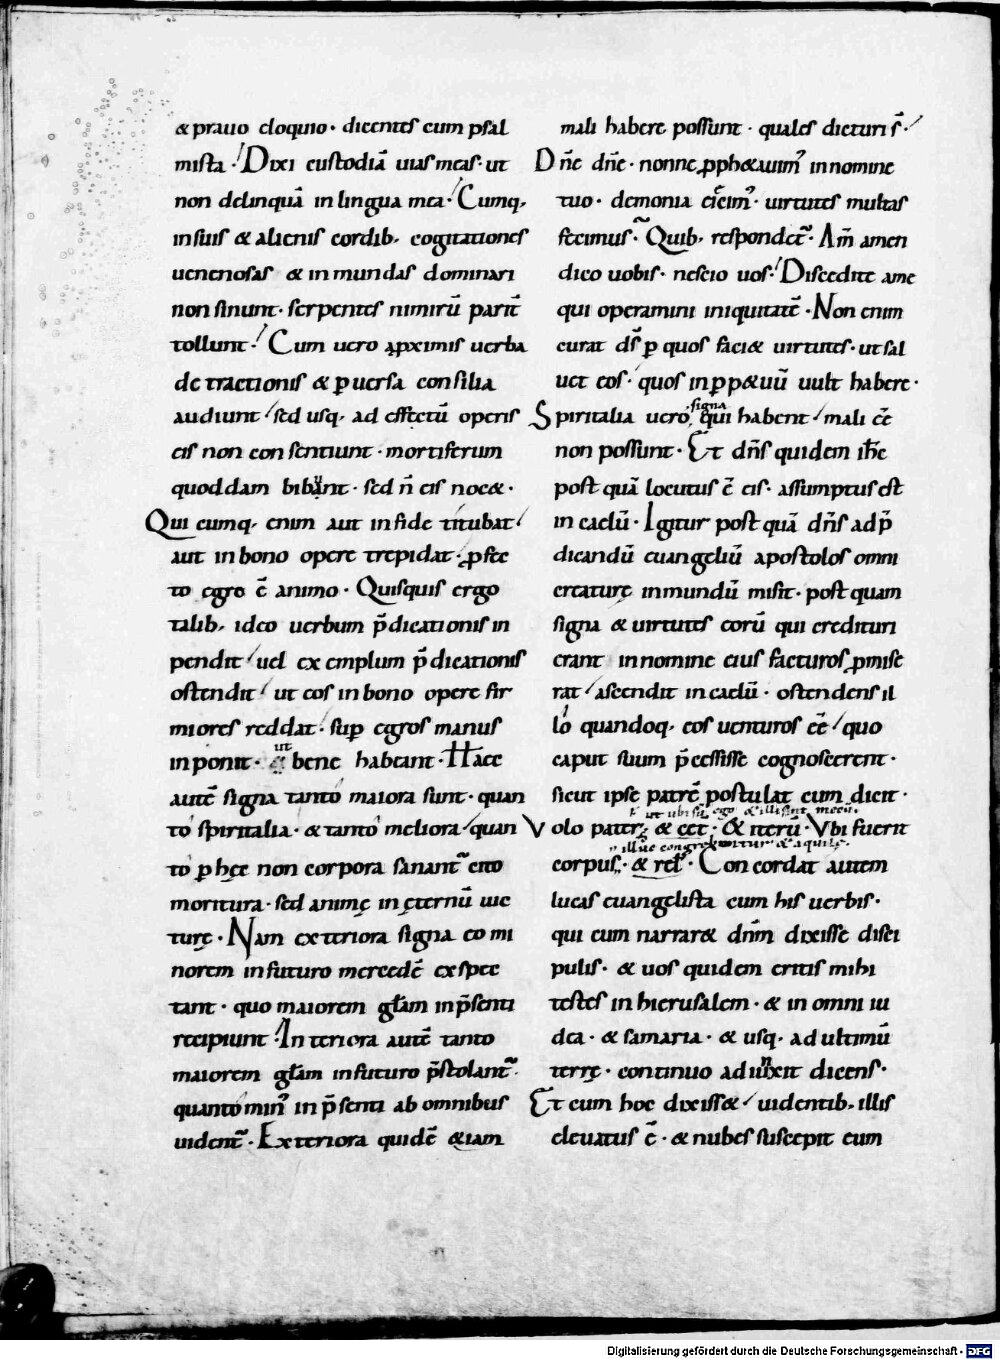 & prauo eloquio · dicentes cum psal
mista · Dixi custodiā uias meas · ut
non delinquā in lingua mea · Cumq;
in suis & alienis cordib; cogitationes
uenenosas & inmundas dominari
non sinunt · serpentes nimirū parit̄
tollunt · Cum uero ꝓximis uerba
detractionis & ꝑuersa consilia
audiunt sed usq; ad effectū operis
eis non consentiunt · mortiferum
quoddam bibunt · sed n̄ eis noc& ·
Quicumq; enim aut in fide titubat
aut in bono opere trepidat · ꝓfec
to egro ē animo · Quisquis ergo
talib; ideo uerbum p̄dicationis in
pendit uel exemplum p̄dicationis
ostendit ut eos in bono opere fir
miores reddat · suꝑ egros manus
inponit · ut bene habeant · Haec
autē signa tanto maiora sunt · quan
to spiritalia · & tanto meliora quan
to ꝑ hęc non corpora sanant̄ cito
moritura · sed animę in ęternū uic
turę · Nam exteriora signa eo mi
norem in futuro mercedē exspec
tant · quo maiorem gl̄am in p̄senti
recipiunt · Interiora autē tanto
maiorem gl̄am in futuro p̄stolant̄ ·
quanto min᾿ in p̄senti ab omnibus
uident̄ · Exteriora quidē &iam
mali habere possunt · quales dicturi s̄ ·
Dn̄e dn̄e · nonne ꝓph&auim᾿ in nomine
tuo · demonia eiecim᾿ · uirtutes multas
fecimus · Quib; respondet̄ · Am̄ amen
dico uobis · nescio uos · Discedite a me
qui operamini iniquitatē · Non enim
curat ds̄ ꝑ quos faci& uirtutes · ut sal
uet eos · quos in ꝑp&uū uult habere ·
signa
Spiritalia uero qui habent mali eē
non possunt · Et dn̄s quidem ih̄c
postquā locutus ē eis · assumptus est
in caelū · Igitur postquā dn̄s ad p̄
dicandū euangeliū apostolos omni
creaturę in mundū misit · postquam
signa & uirtutes eorū qui credituri
erant in nomine eius facturos ꝓmise
rat ascendit in caelū · ostendens il
lo quandoq; eos uenturos eē quo
caput suum p̄cessisse cognoscerent ·
sicut ipse patrē postulat cum dicit ·
ut ubi sū ego & illi sint mecū ·
Volo pater & cet · & iterū · Vbi fuerit
illuc congregabuntur & aquilę ·
corpus · & rel̄ · Concordat autem
lucas euangelista cum his uerbis ·
qui cum narrar& dn̄m dixisse disci
pulis · & uos quidem eritis mihi
testes in hierusalem · & in omni iu
dea · & samaria · & usq; ad ultimū
terrę · continuo adiunxit dicens ·
Et cum hoc dixiss& uidentib; illis
eleuatus ē · & nubes suscepit eum
Digitalisierung gefördert durch die Deutsche Forschungsgemeinschaft - DFG